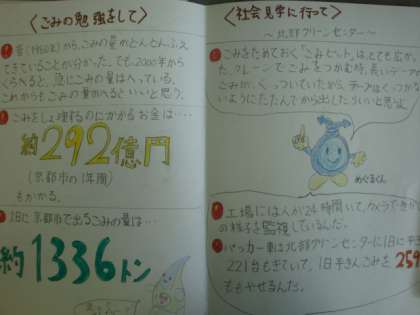 〈ごみの勉強をして〉
昔(1980年)から、ごみの量がどんどんふえ
てきていることが分かった。でも、2000年から
くらべると、急にごみの量はへっている。
これからもごみの量がへるといいと思う。
ごみをしょ理するのにかかるお金は…
約292億円
(京都市の1年間)
もかかる。
1日に京都市で出るごみの量は…
約1336トン
〈社会見学に行って〉
~北部クリーンセンター~
ごみをためておく「ごみピット」は、とても広か
った。クレーンでごみをつかむ時、長いテープ
ごみが、くっついていたから、テープはくっつかな
いようにたたんでから出したらいいと思う
めぐるくん
工場には人が24時間いて、カメラで
の様子を監視しているんだ。
パッカー車は北部クリーンセンターに1日に平
221台もきていて、1日平きんごみを259
ももやせるんだ。